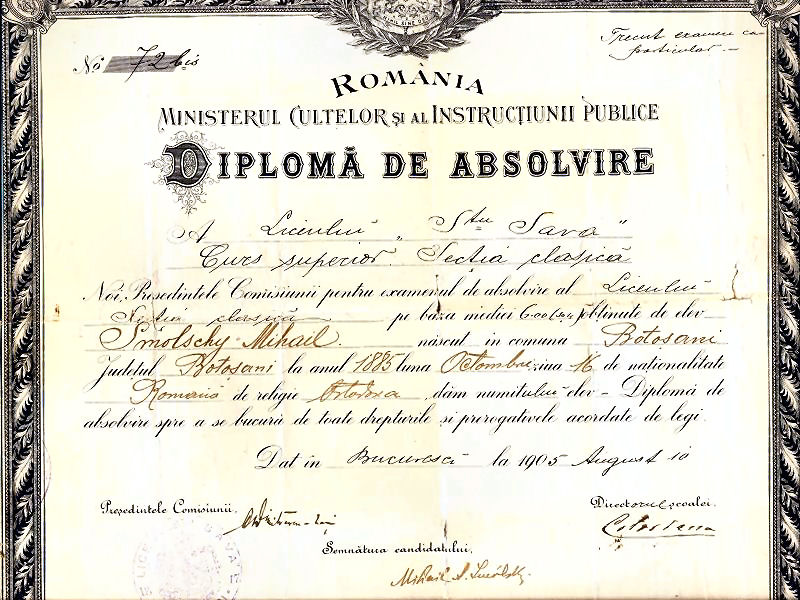 NIHIL SINE DEO
No 72 bis
Trecut examen ca
particular.—
ROMÂNIA
MINISTERUL CULTELOR ȘI AL INSTRUCȚIUNII PUBLICE
DIPLOMĂ DE ABSOLVIRE
A Liceului „Stu Sava"
Curs superior. Secția clasică
Noi, Președintele Comisiunii pentru examenul de absolvire al Liceului
Secția clasică pe baza mediei obținute de elev
Smolschy Mihail. născut in comuna Botosani
Județul Botosani la anul 1885 luna Octombrie ziua 16 de nationalitate
Română de religie Ortodoxa dăm numitului elev – Diplomă de
absolvire spre a se bucură de toate drepturile si prerogativele acordate de legi.
Dat in Bucuresci la 1905 August 10
Președintele Comisiunii,
Directorul școalei,
Semnătura candidatului,
Mihail A. Smolsky.